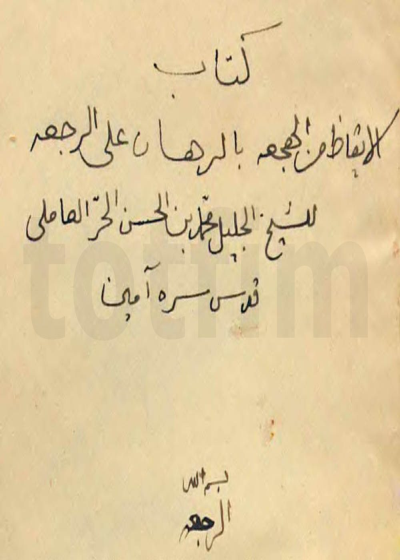 كتاب
الايقاظ من الهجعه بالبرهان على الرجعه
للشيخ الجليل محمد بن الحسن الحرّ العاملى
قدس سره آمين
totfim
بسم الله
الرجعه